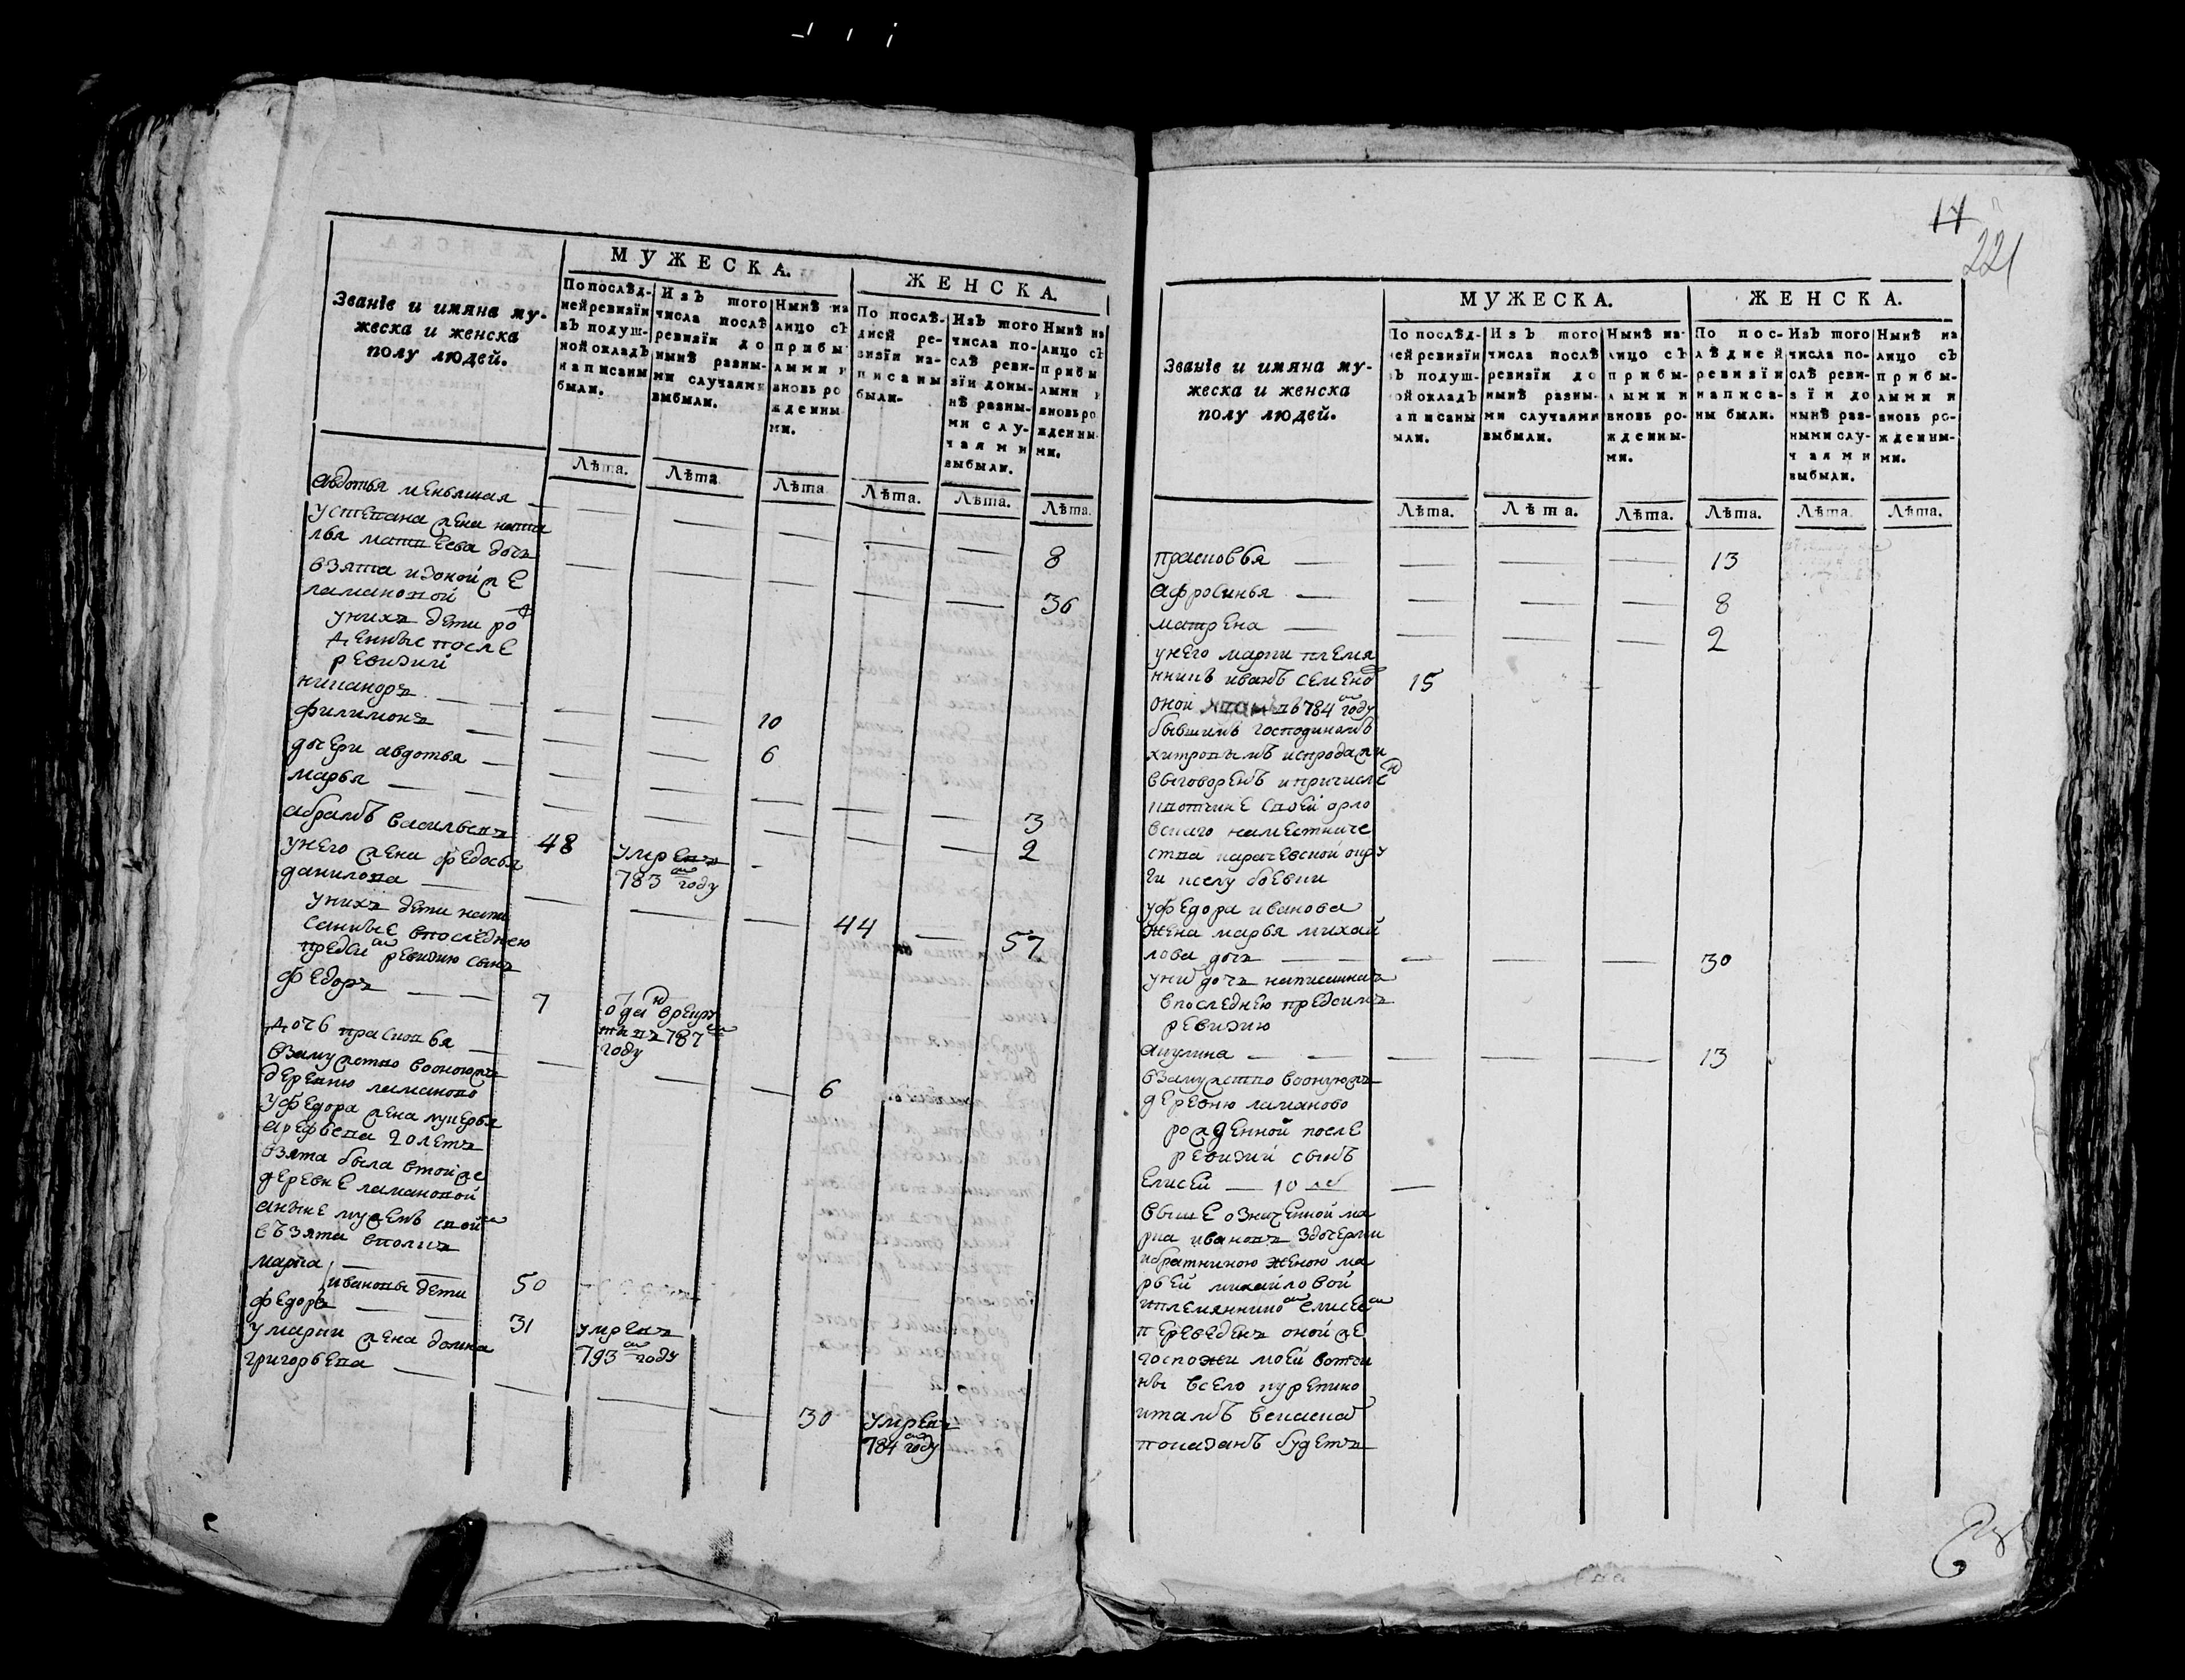 МУЖЕСКА.
ЖЕНСКА.
Званїе и имяна му-
жеска и женска
полу людей.
По послѣд-
ней ревизїи
въ подуш-
ной окладъ
написаны
были.
Изъ того
числа послѣ
ревизїи до
нынѣ разны-
ми случаями
выбыли.
Нынѣ на
лицо съ
прибы
лыми и
вновь ро
жденны
ми.
По послѣ-
дней ре-
визїи на-
писаны
были.
Изъ того
числа по-
слѣ реви-
зїи доны-
нѣ разны-
ми слу-
чаями
выбыли.
Нынѣ на
лицо съ
прибы
лыми и
вновь ро
жденны-
ми.
Лѣта.
Лѣта
Лѣта
Лѣта.
Лѣта.
Лѣта.
авдотья меньшая — 8
устепана жена ната
лья матвеева дочь
взята изоной же
ламановой 36
унихъ дети ро
жденные после
ревизии
никаноръ — 10
филимонъ 6
дочери авдотья — 3
марья — 2
абрамъ васильевъ 48 умревъ
783 году
унего жена федосья
данилова — 44 — 57
унихъ дети напи
санные впоследнею
предсию ревизию сынъ
федоръ — 7 отданъ врекру
ты въ 787
году
дочь прасковья — 6
взамужство воноюжъ
деревню ламаново
уфедора жена лукерья
арефьева 20 летъ
взята была втойже
деревне ламановой
марка
ивановы дети 50
федоръ 31 умревъ
793 году
умарки жена домна
григорьева — 30 умрева
784 году
14
221
МУЖЕСКА.
ЖЕНСКА.
Званїе и имяна му-
жеска и женска
полу людей.
По послѣд-
ней ревизїи
въ подуш-
ной окладъ
написаны
были.
Изъ того
числа послѣ
ревизїи до
нынѣ разны-
ми случаями
выбыли.
Нынѣ на-
лицо съ
прибы-
лыми и
вновь ро-
жденны-
ми.
По пос-
лѣдней
ревизїи
написа-
ны были.
Изъ того
числа по-
слѣ реви-
зїи до
нынѣ раз-
ными слу-
чаями
выбыли.
Нынѣ на
лицо съ
прибы-
лыми и
вновь ро-
жденны-
ми.
Лѣта.
Лѣта.
Лѣта.
Лѣта.
Лѣта.
Лѣта.
прасковья — 13
афросинья — 8
матрена — 2
унего марки племя
нникъ иванъ семено 15
оной въ 784 году
бывшимъ господиномъ
хитровымъ испродажи
выговоренъ и причисле
квотчине своей орло
вскаго наместниче
ства карачевской окру
ги кселу боевки
уфедора иванова
жена марья михай
лова дочь — 30
уни дочь написанная
впоследнею предсимъ
ревизию
акулина — 13
взамужство вонуюжъ
деревню ламаново
рожденной после
ревизии сынъ
елисей — 10 ле —
выше означенной ма
рка ивановъ здочерми
ибратниною женою ма
рьей михайловой
иплемянником елисеем
переведенъ оной же
госпожи моей вотчи
ны всело курепино
итамъ вскаско
показанъ будетъ